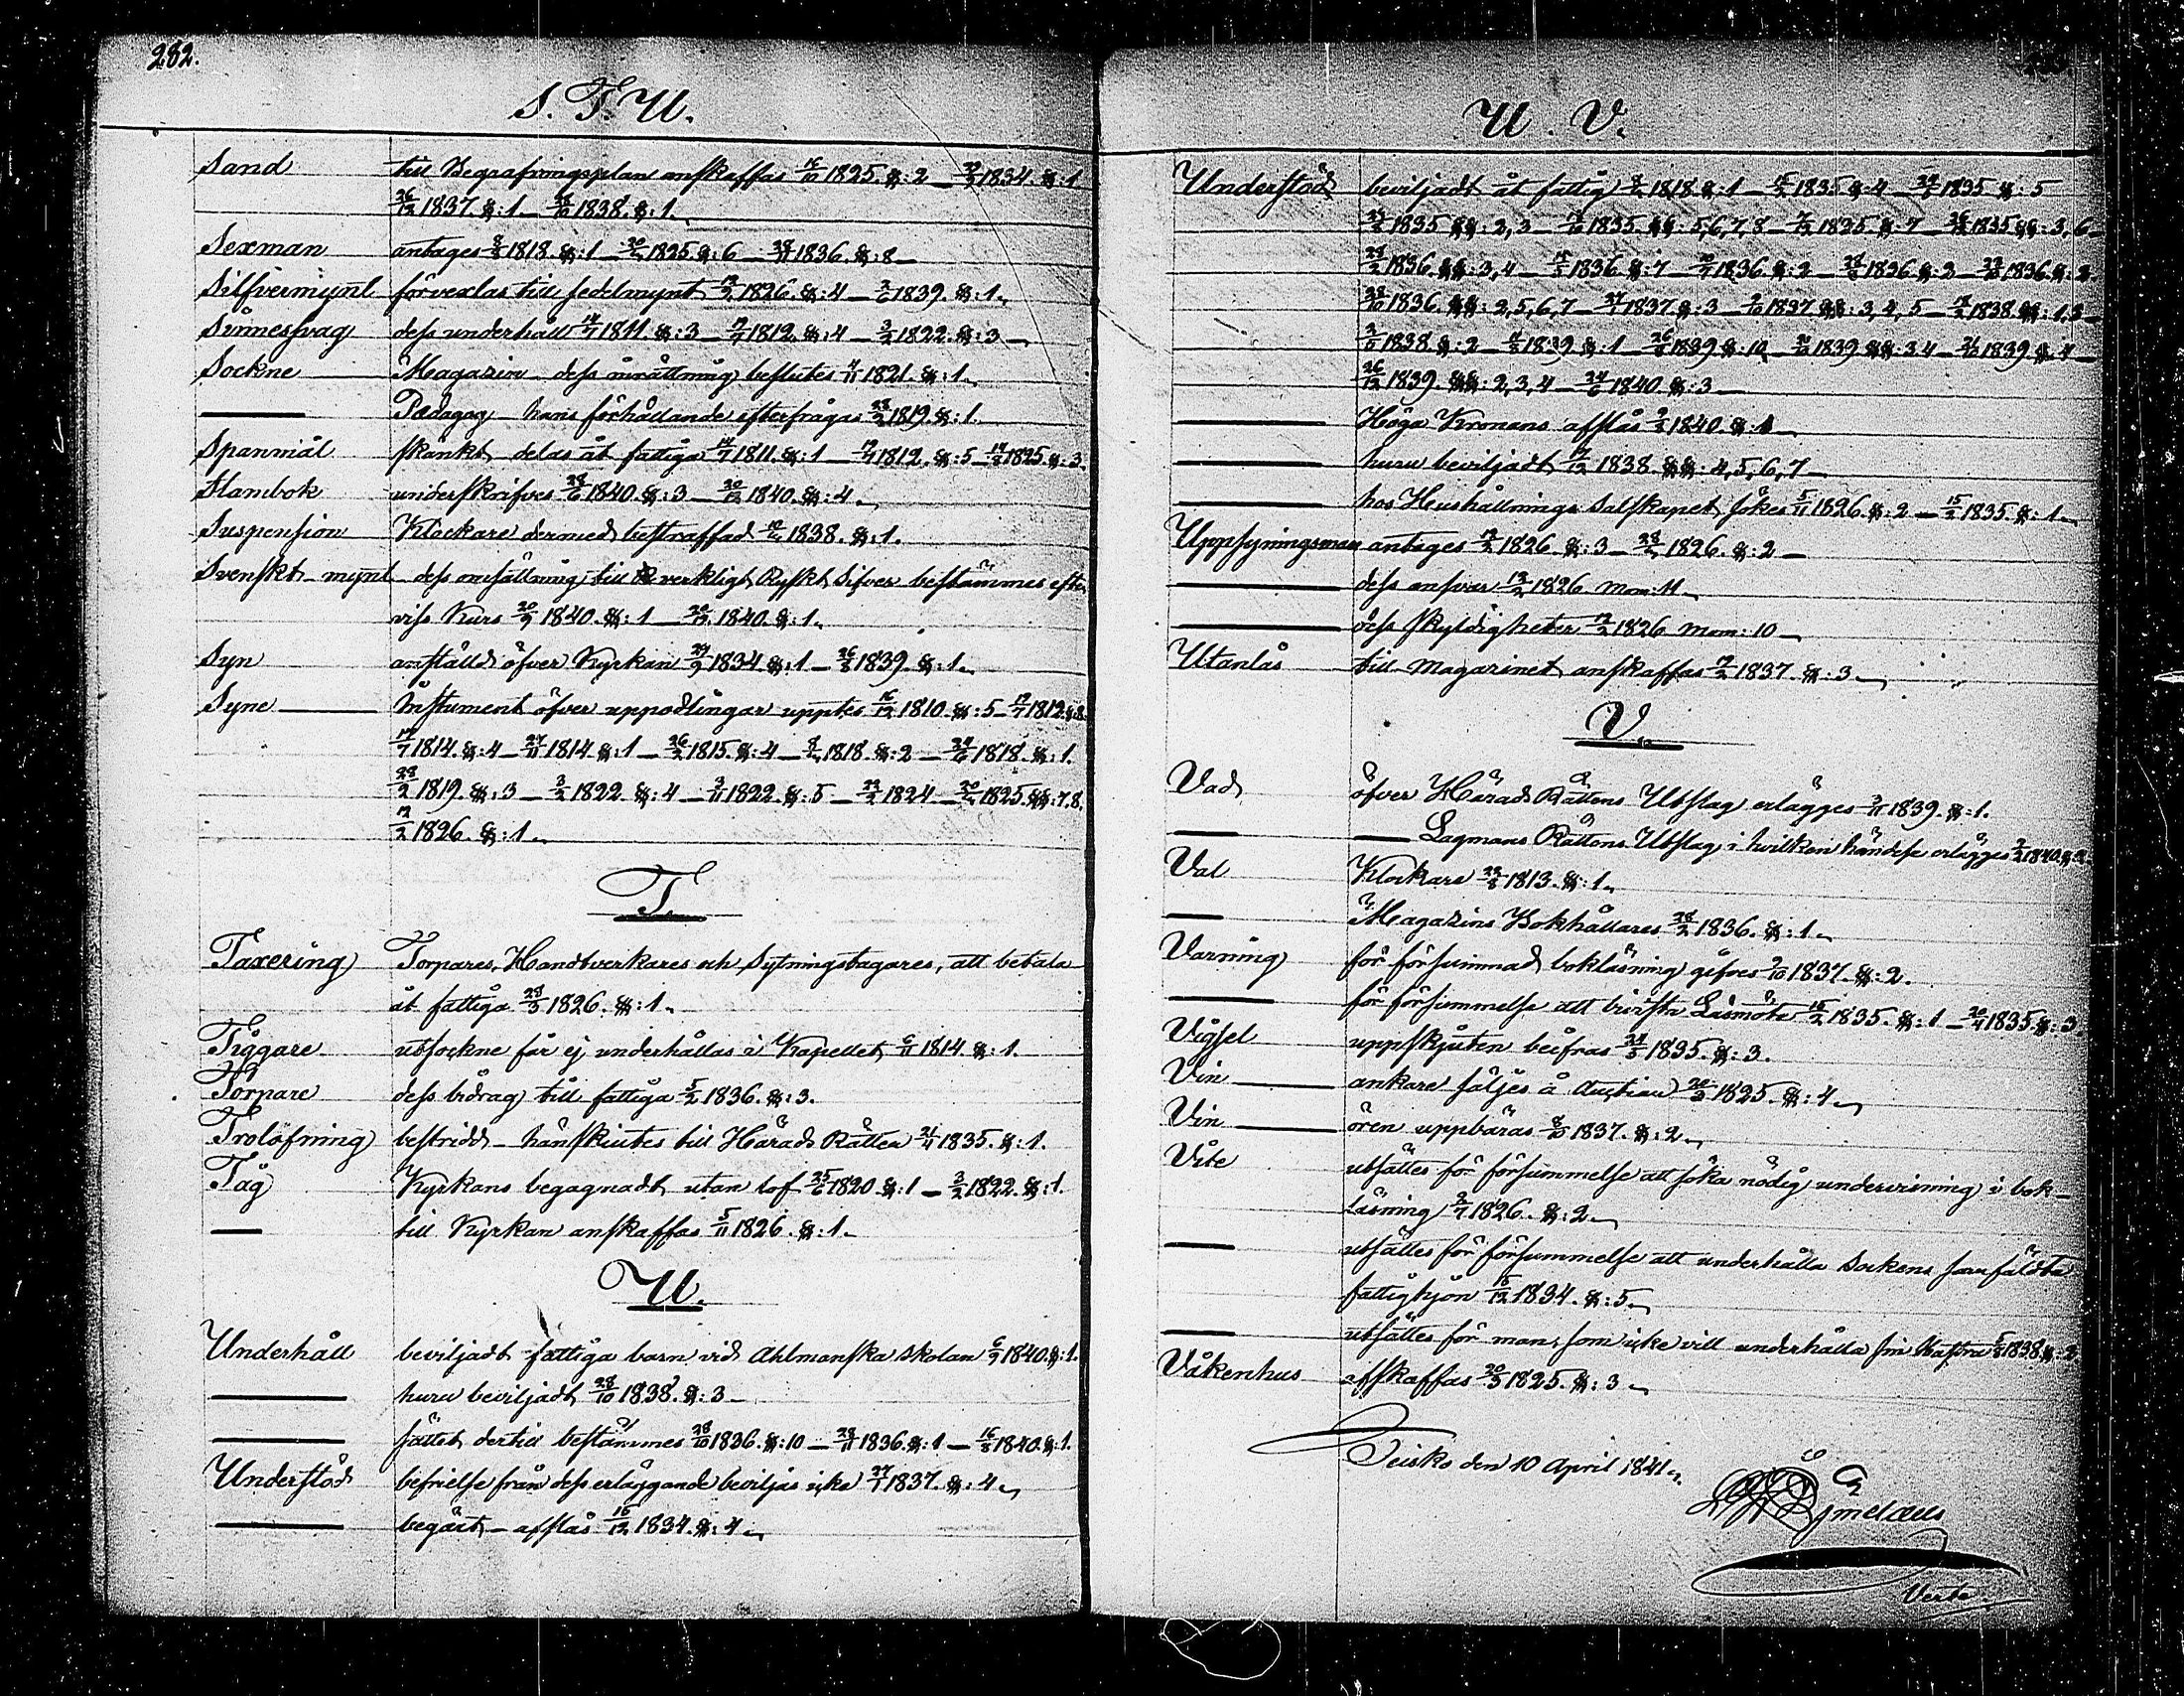 282.
S. T. U.
Sand till Begrafningsplan anskaffas 16/10 1825. §: 2 — 29/9 1834. §: 1
26/12 1837. §: 1 — 28/10 1838. §: 1.
Sexman antages 8/2 1818. §: 1 — 20/2 1825. §: 6 — 28/11 1836. §: 8 —
Silfvermynt förvexlas till sedelmynt 12/2 1826. §: 4 — 2/6 1839. §: 1.
dess underhåll 14/7 1811. §: 3 — 9/7 1812. §: 4 — 3/2 1822. §: 3 —
Sockne Magazin dess inrättning beslutes 4/11 1821. §: 1.
— Pædagog hans förhållande efterfrågas 28/2 1819. §: 1.
Spanmål skänkt, delas åt fattiga 14/7 1811. §: 1 — 19/7 1812. §: 5 — 14/8 1825. §: 3.
Stambok underskrifves 28/6 1840. §: 3 — 20/12 1840. §: 4.
Suspension Klockare dermed bestraffad 1838. §: 1.
Svenskt mynt dess omsättning till verkligt Ryskt Silfver bestämmes efter
viss Kurs 20/9 1840. §: 1 — 20/12 1840. §: 1.
Syn anställd öfver Kyrkan 29/9 1834. §: 1 — 26/8 1839. §: 1.
Syne — Instument öfver uppodlingar upptes 16/12 1810. §: 5 — 19/7 1812. §: 8.
17/7 1814. §: 4 — 27/11 1814. §: 1 — 26/2 1815. §: 4 — 8/2 1818. §: 2 — 24/6 1818. §: 1.
28/2 1819. §: 3 — 3/2 1822. §: 4 — 3/11 1822. §: 5 — 22/2 1824 — 20/2 1825. §§: 7.8.
12/2 1826. §: 1.
T.
Taxering Torpares, Handtverkares och Sytningstagares, att betala
åt fattiga 28/3 1826. §: 1.
Tiggare utsockne får ej underhållas i Kapellet 6/11 1814. §: 1.
Torpare dess bidrag till fattiga 5/2 1836. §: 3.
Trolofning bestridd hänskiutes till Härads Rätten 21/11 1835. §: 1.
Tåg Kyrkans begagnadt utan lof 25/6 1820. §: 1 — 3/2 1822. §: 1.
— till Kyrkan anskaffas 5/11 1826. §: 1.
U.
Underhåll beviljadt fattiga barn vid Ahlmanska skolan 6/9 1840. §: 1.
— huru beviljadt 28/10 1838. §: 3 —
— sättet dertill bestämmes 28/10 1836. §: 10 — 28/11 1836. §: 1 — 16/8 1840. §: 1.
Understöd befrielse från dess erläggande beviljas icke 27/1 1837. §: 4.
— begärt — afslås 15/12 1834. §: 4.
U. V.
Understöd beviljadt åt fattig 8/2 1818. §: 1 — 15/2 1835. §: 4 — 1835. §: 5
1835 §§: 2, 3 — 1835. §§: 5, 6, 7, 8 — 1835. §: 7 — 26/12 1835. §§: 3. 6 —
28/2 1836. §§: 3, 4 — 1836. §: 7 — 10/7 1836. §: 2 — 28/8 1836. §: 2 — 1836. §: 2.
28/10 1836. §§: 2, 5, 6, 7 — 27/1 1837. §: 3 — 2/10 1837 §§: 3, 4, 5 — 1838. §§: 1.2 —
1838 §: 2 — 1839 §: 1 — 26/8 1839 §: 10 — 1839 §§: 3.4 — 1839 §: 4 —
26/12 1839. §§: 2, 3, 4 — 24/6 1840. §: 3 —
— Höga Kronans afslås 1840. §: 1 —
— huru beviljadt 17/12 1838. §§: 4, 5, 6, 7 —
— hos Hushållnings Sälskapet sökes 5/11 1826. §: 2 — 15/2 1835. §: 1.
Uppsyningsman antages 12/2 1826. §: 3 — 1826. §: 2 —
— dess ansvar 12/2 1826. Mom: 11.
— dess skyldigheter 12/2 1826 Mom: 10 —
Utanlås till magazinet anskaffas 1837. §: 3.
V.
Vad öfver Härads Rättens Utslag erlägges 3/11 1839. §: 1.
— — Lagmans Rättens Utslag i hvilken händese erlägges 1840. §: 2.
Val Klockare 1813. §: 1.
— Magazins Bokhållares 28/2 1836. §: 1.
Varning för försummad bokläsning gifves 2/10 1837. §: 2.
— för försummelse att bivista Läsmöte 15/2 1835. §: 1 — 20/4 1835. §: 3
Vigsel uppskjuten beifras 24/5 1835. §: 3.
Vin — ankare säljes å Auction 20/3 1825. §: 4.
Vin — ören uppbäras 8/10 1837. §: 2.
Vite utsättes för försummelse att söka nödig undervisning i bok-
läsning 2/7 1826. §: 2.
— utsättes för försummelse att underhålla Sockens samfäldta
fattighjon 15/12 1834. §: 5.
— utsättes för man, som icke vill underhålla sin 1838. §: 2
Våkenhus afskaffas 20/3 1825. §: 3.
Teisko den 10 April 1841.
Verte